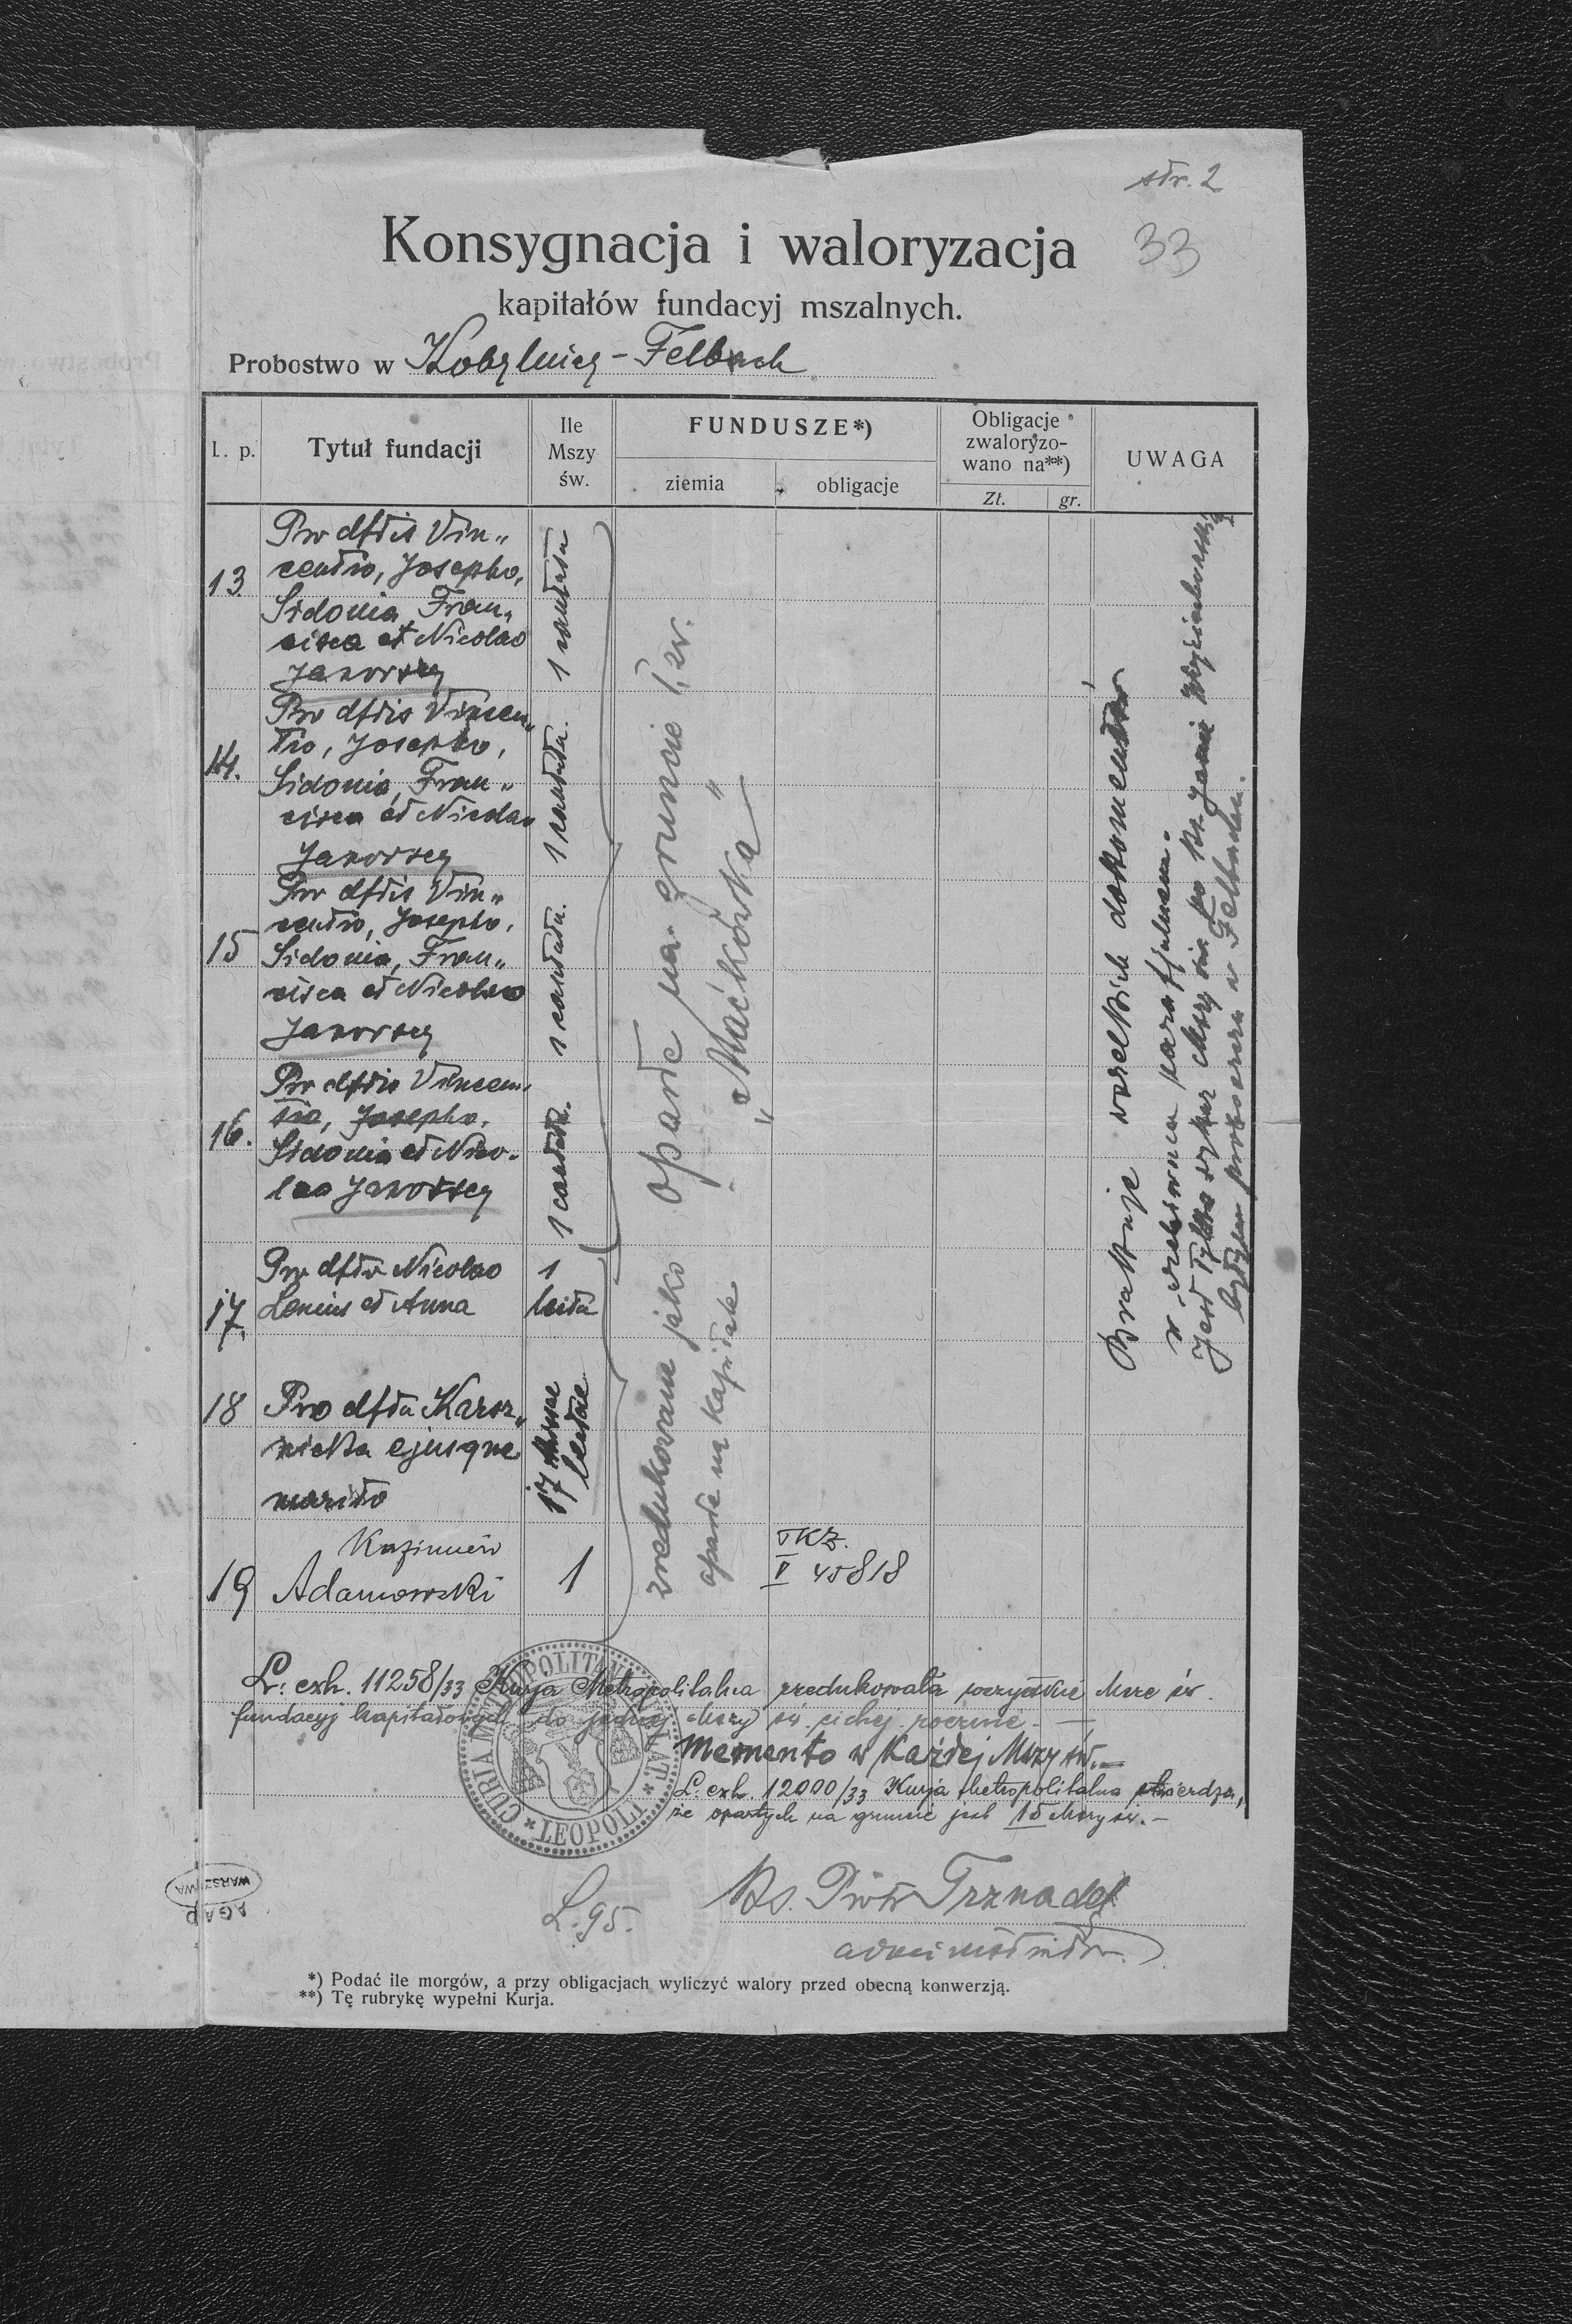 str. 2
33
Konsygnacja i waloryzacja
kapitałów fundacyj mszalnych.
Probostwo w Kobylnicy - Felbach
l. p.
Tytuł fundacji
Ile
Mszy
św.
FUNDUSZE*)
ziemia
obligacje
Obligacje
zwaloryzo-
wano na**)
Zł.
gr.
UWAGA
13
Pro dftis Vin„
centio, Josepho,
Sidonia, Fran„
cisca et Nicolao
Jaworscy
1 cantata
14.
Pro dftis Vincen„
tio, Josepho,
Sidonia, Fran„
cisca et Nicolao
Jaworscy
1 cantata.
15
Pro dftis Vin„
centio, Josepho,
Sidonia, Fran„
cisca et Nicolao
Jaworscy
1 cantata.
16.
Pro dftis Vincen„
tio, Josepho,
Sidonia et Nico-
lao Jaworscy
1 cantata.
17.
Pro dfto Nicolao
et Anna
1
lecta
18
Pro dfta Karsz„
nicka ejusque
marito
17 Missae
lectae
19
Kazimierz
Adamowski
1
TKZ.
V 45818
oparte na gruncie t. zw.
„Maćkówka”
zredukowane jako
oparte na kapitale
Brakuje wszelkich dokumentów
w archiwum parafjalnem.
Jest tylko wykaz Mszy św. po ks. Janie
byłym proboszczu w Felbachu.
L. exh. 11258/33 Kurja Metropolitalna zredukowała wszystkie Msze św.
fundacyj kapitałowych do jednej Mszy św. cichej rocznie. —
Memento w każdej Mszy św. —
L. exh. 12000/33 Kurja Metropolitalna stwierdza,
że opartych na gruncie jest 15 Mszy św. —
CURIA METROPOLITANA LAT. LEOPOLI
L. 95.
Ks. Piotr Trznadel
administrator
AGAD
WARSZAWA
*) Podać ile morgów, a przy obligacjach wyliczyć walory przed obecną konwerzją.
**) Tę rubrykę wypełni Kurja.